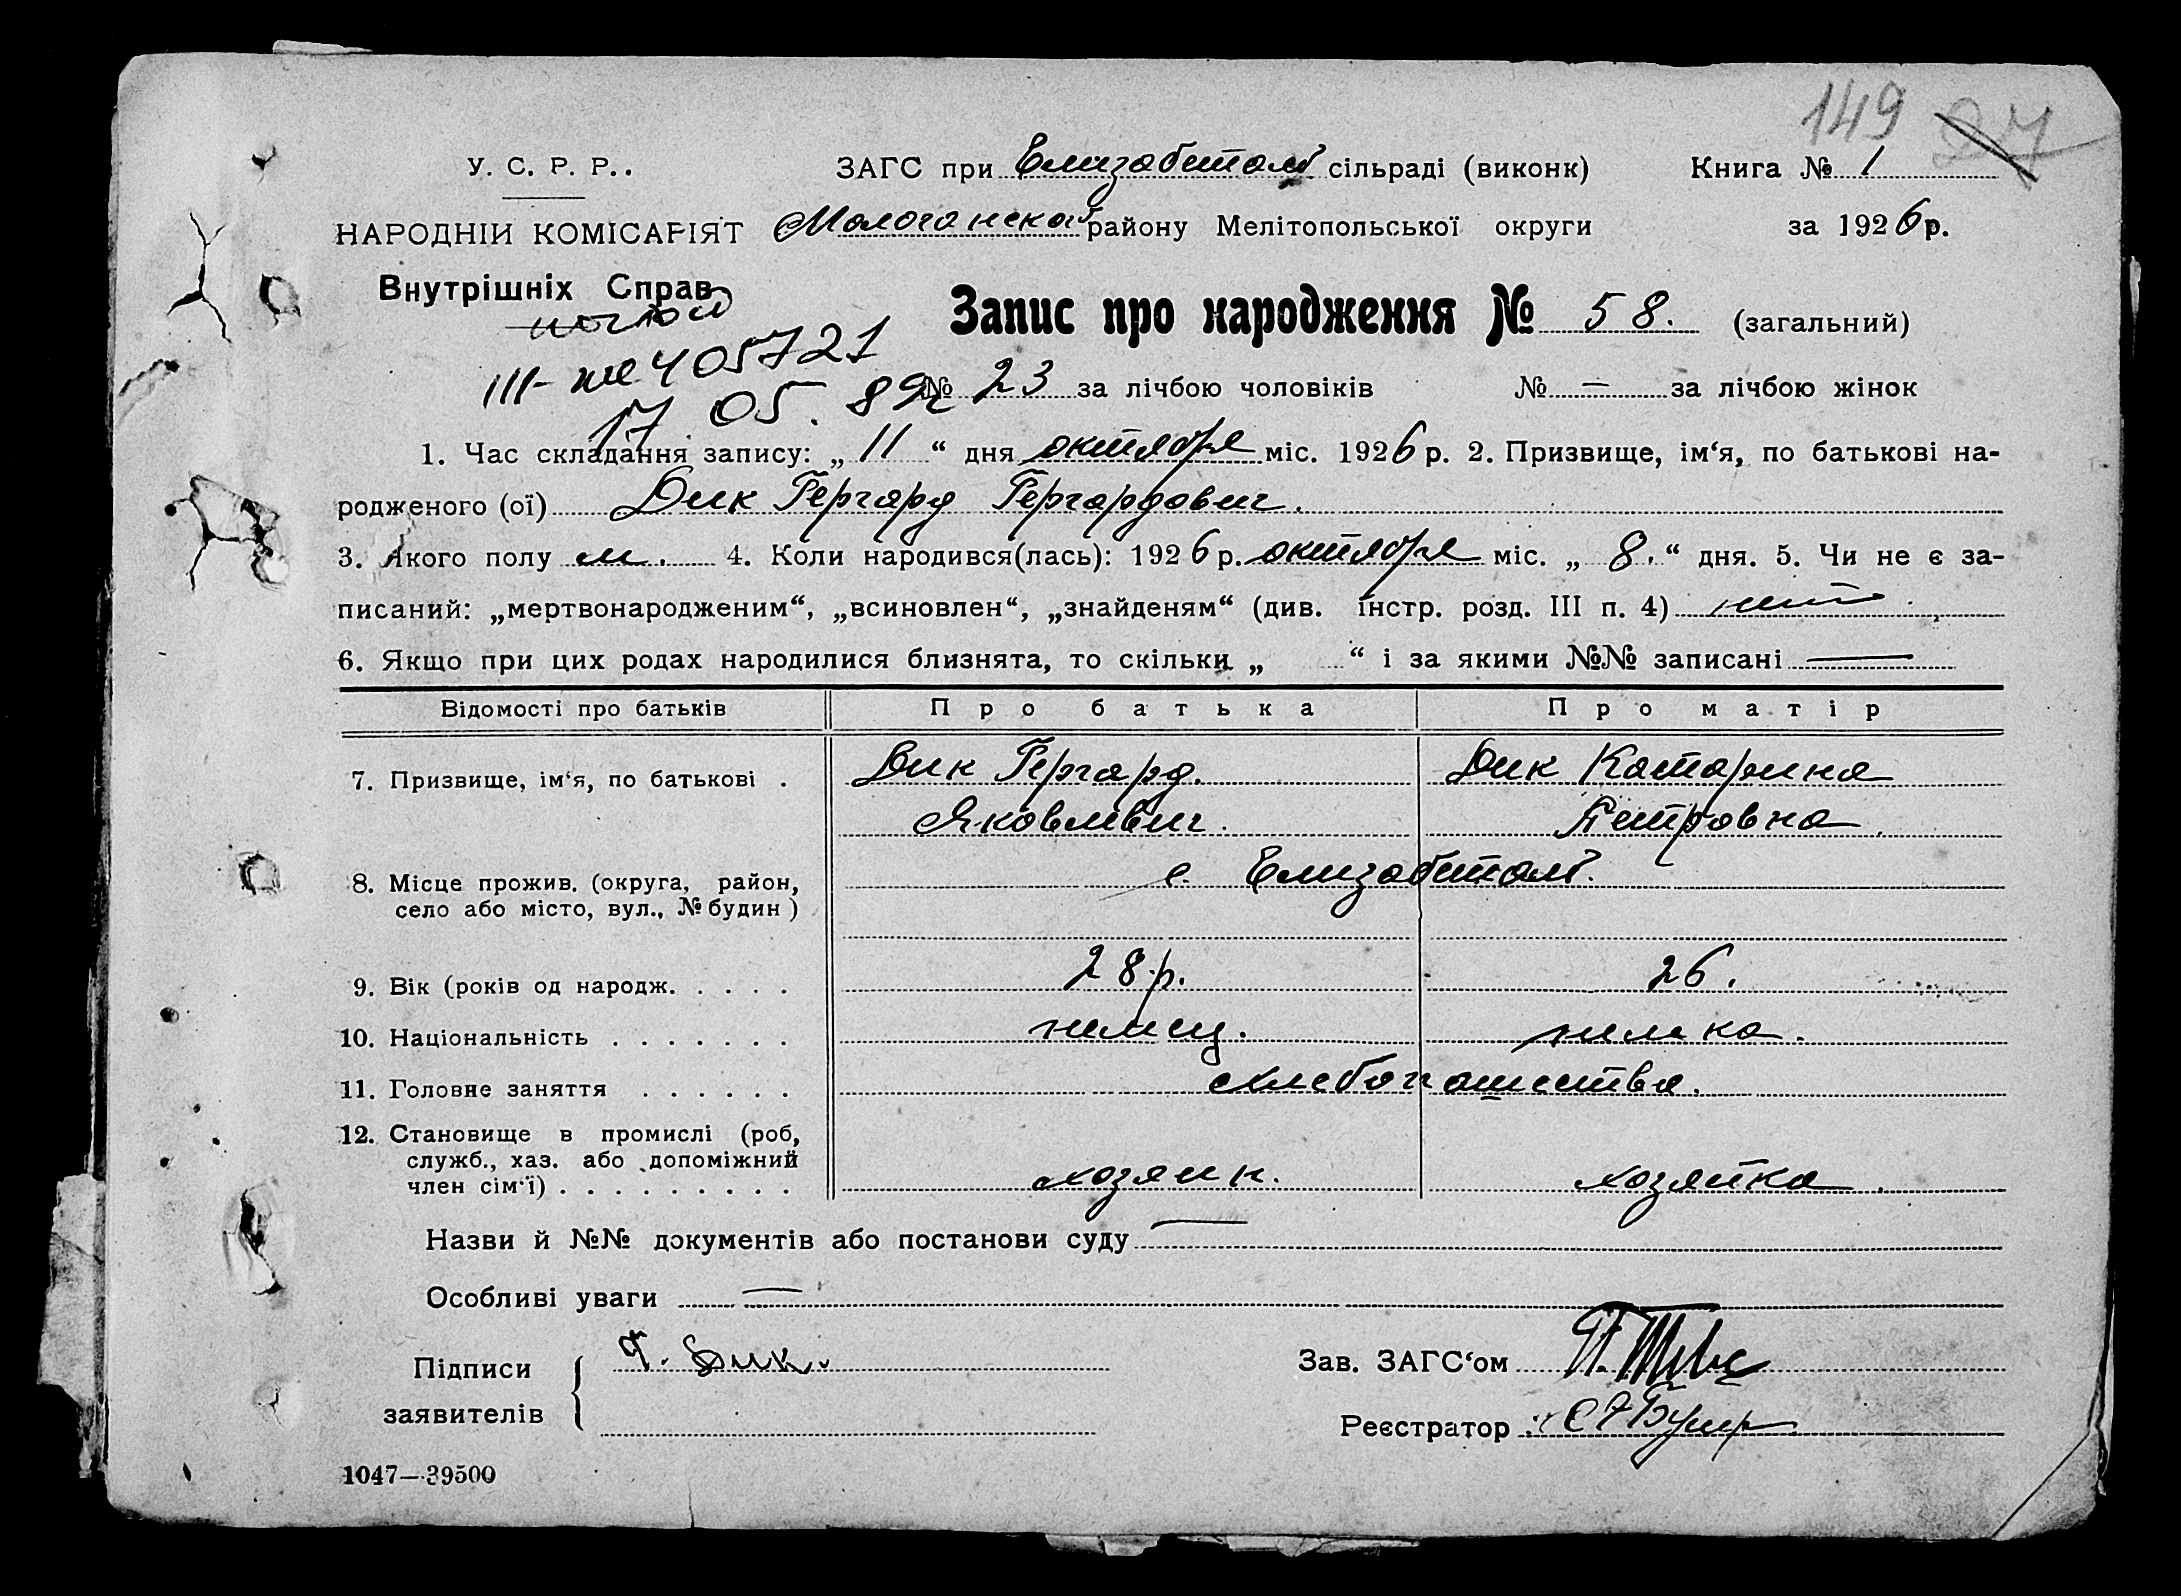 149 27
У. С. Р. Р.. ЗАГС при Елизабетал сільраді (виконк) Книга № 1
НАРОДНІЙ КОМІСАРІЯТ Молочанской району Мелітопольської округи за 1926 р.
Внутрішніх Справ
Запис про народження № 58. (загальний)
III-же 405721
№ 23 за лічбою чоловіків № — за лічбою жінок
17. 05. 89г
1. Час складання запису: „ 11 “ дня октября міс. 1926 р. 2. Призвище, ім‘я, по батькові на-
родженого (ої) Дик Гергард Гергардович.
3. Якого полу м. 4. Коли народився(лась): 1926 р. октября міс. „ 8. “ дня. 5. Чи не є за-
писаний: „мертвонародженим“, „всиновлен“, „знайденям“ (див. інстр. розд. III п. 4) нет.
6. Якщо при цих родах народилися близнята, то скільки „ “ і за якими №№ записані —
Відомості про батьків Про батька Про матір
7. Призвище, ім‘я, по батькові . Дик Гергард. Дик Катарина
Яковлевич. Петровна.
8. Місце прожив. (округа, район, с. Елизабетал.
село або місто, вул., № будин)
9. Вік (років од народж. . . . . 28 р. 26.
10. Національність . . . . . . . немец. немка.
11. Головне заняття . . . . . . хлебопашество.
12. Становище в промислі (роб,
служб., хаз. або допоміжний
член сім‘ї) . . . . . . . . . хозяин. хозяйка.
Назви й №№ документів або постанови суду —
Особливі уваги —
Підписи Г. Дик. Зав. ЗАГС‘ом
заявителів Реєстратор
1047—39500